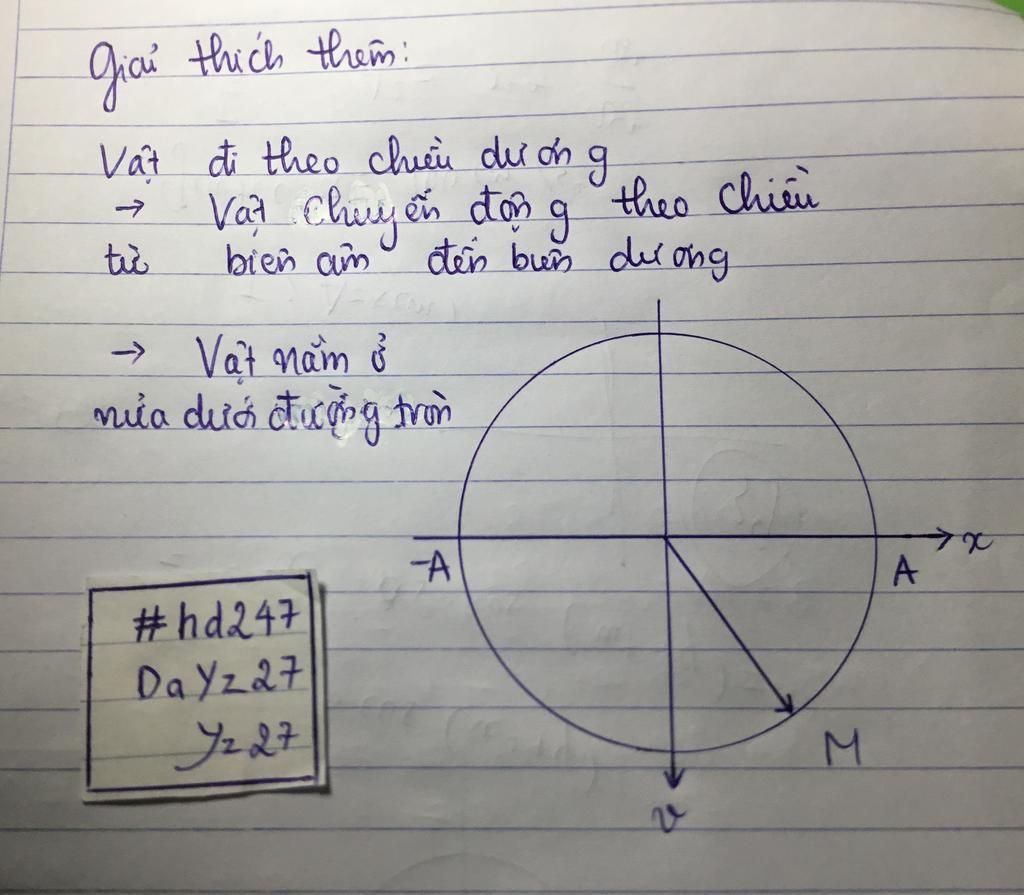 Giải thích thêm:
Vật đi theo chiều dương
→ Vật chuyển động theo chiều
từ biên âm đến biên dương
→ Vật nằm ở
nửa dưới đường tròn
-A
A
x
M
v
#hd247
DaYz27
Yz27